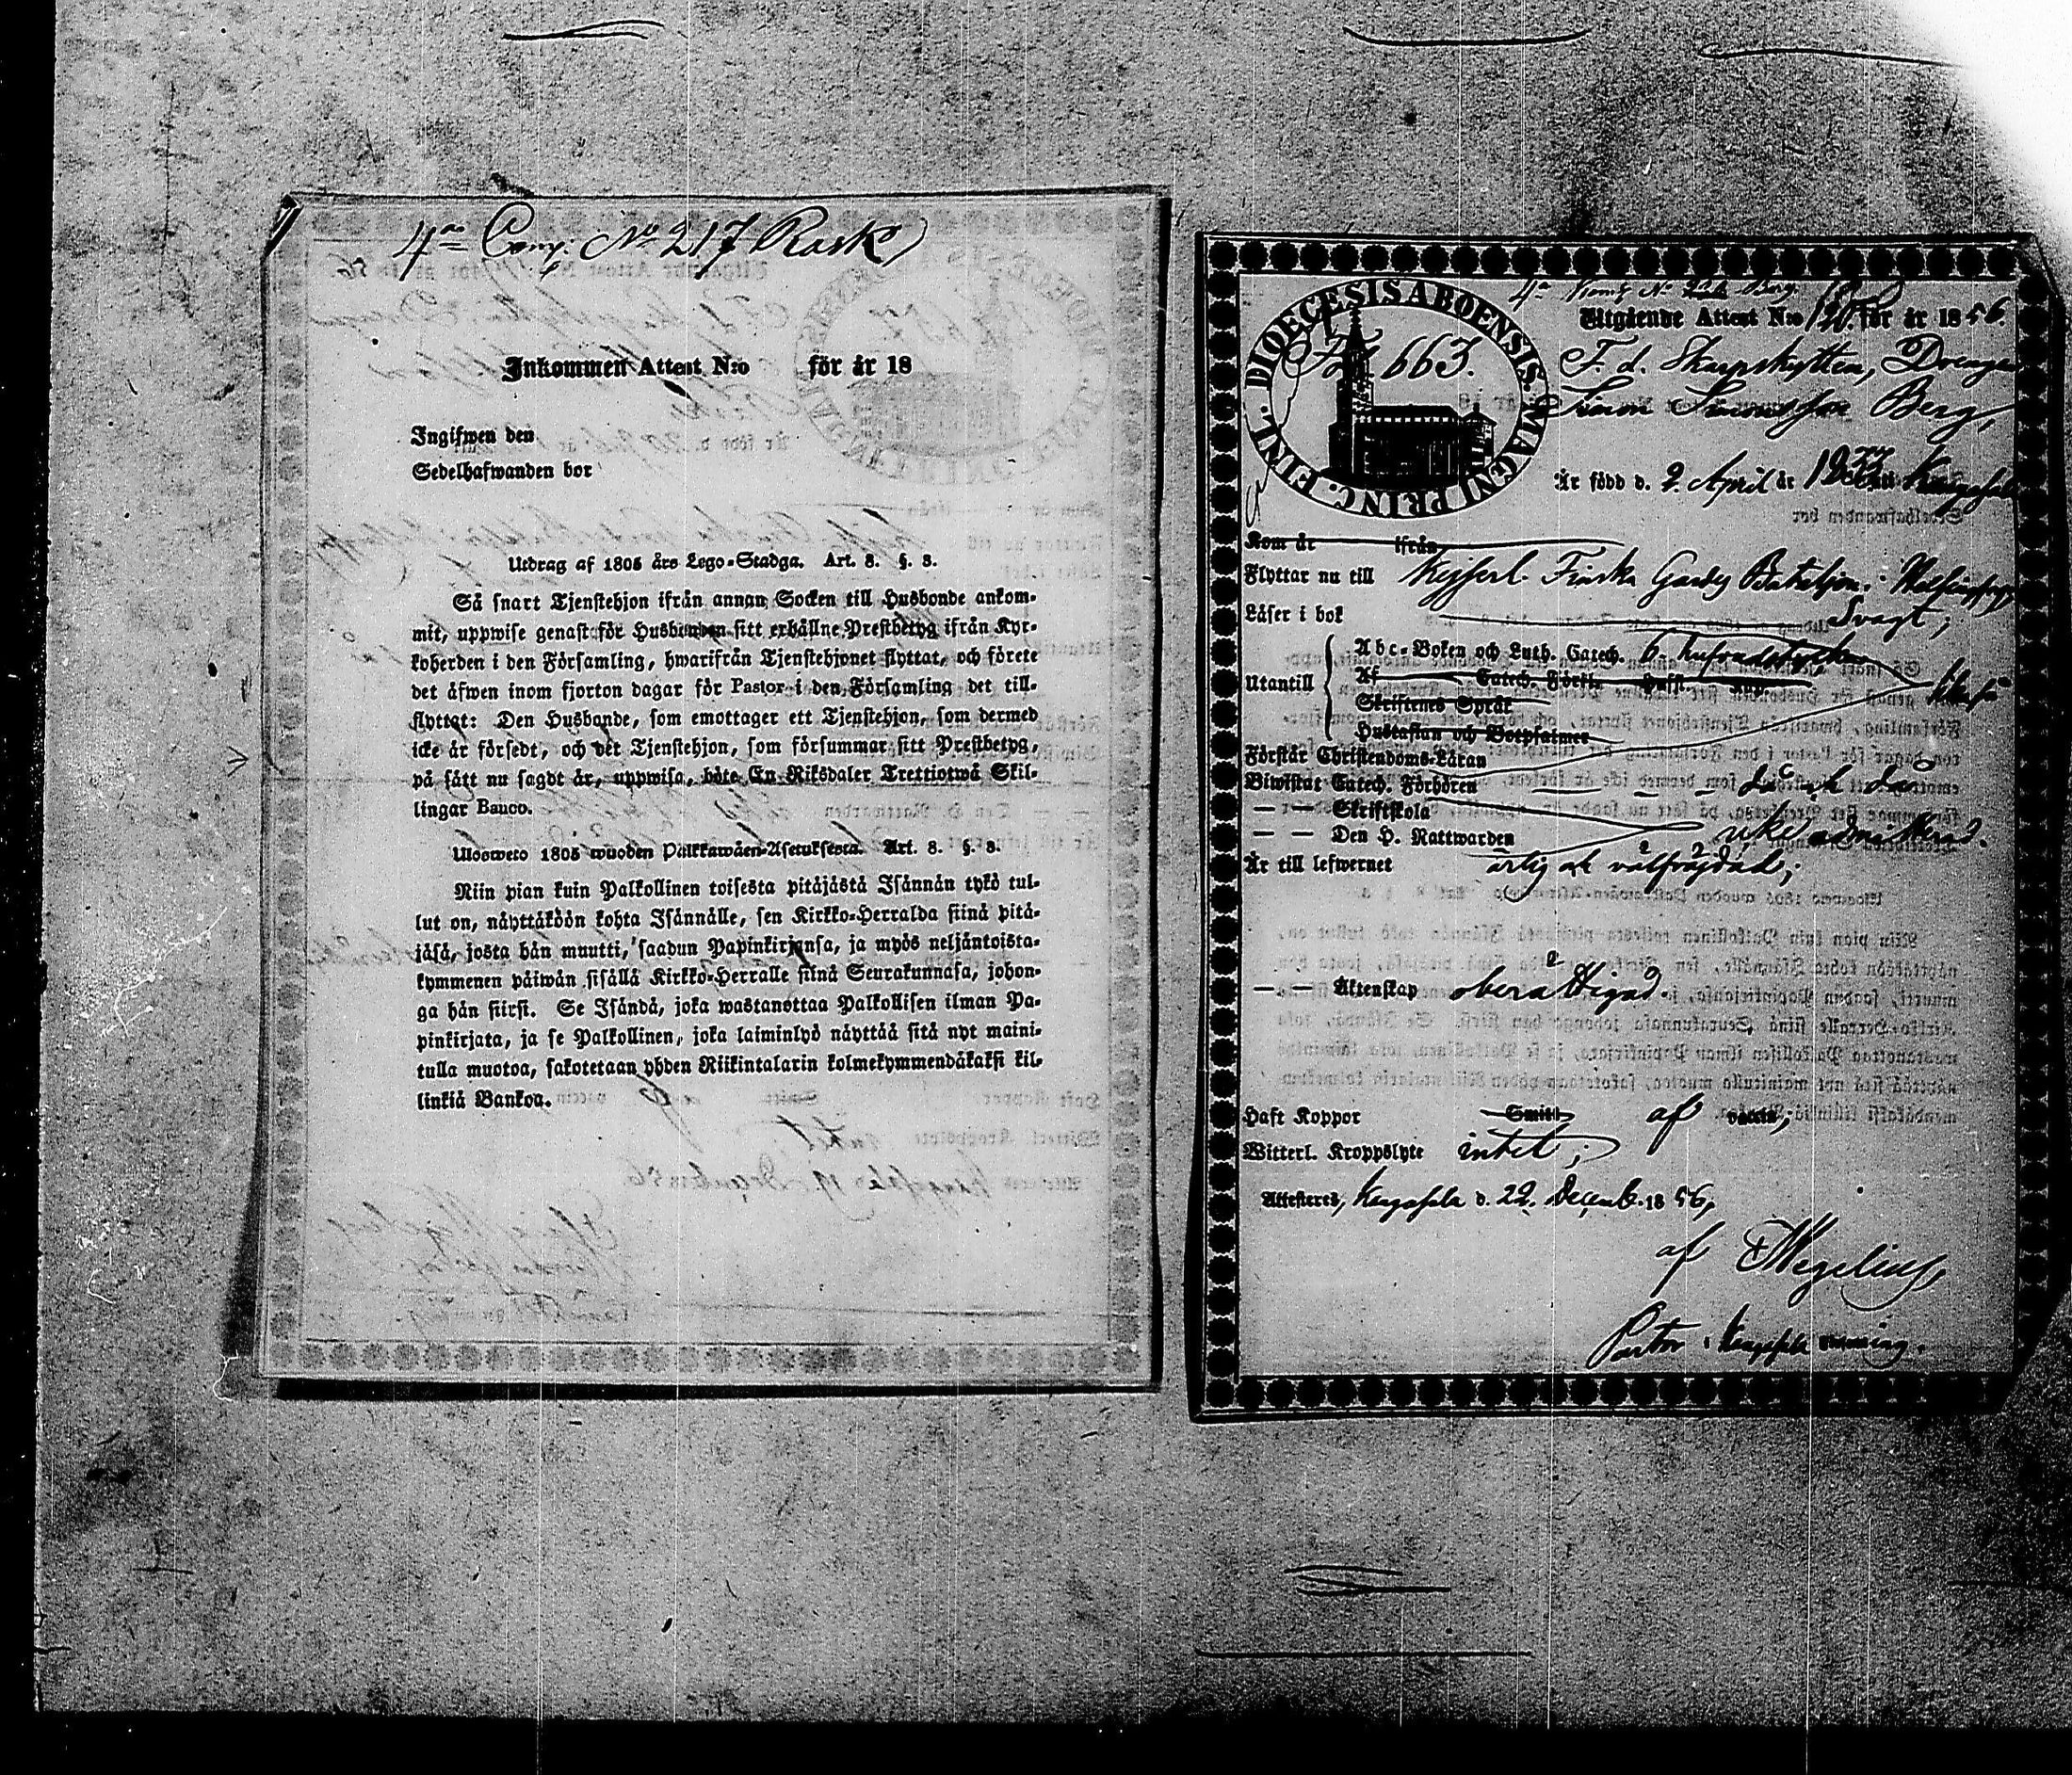 4de Comp: No 217 Rask
Inkommen Attest N:o för år 18
Ingifwen den
Sedelhafwanden bor
Utdrag af 1805 års Lego-Stadga. Art. 8. §. 8.
Så snart Tjenstehjon ifrån annan Socken till Husbonde ankom-
mit, uppwise genast för Husbonden sitt erhållne Prestbetyg ifrån Kyr-
koherden i den Församling, hwarifrån Tjenstehjonet flyttat, och förete
det äfwen inom fjorton dagar för Pastor i den Församling det till-
flyttat: Den Husbonde, som emottager ett Tjenstehjon, som dermed
icke är försedt, och det Tjenstehjon, som försummar sitt Prestbetyg,
på sätt nu sagdt är, uppwisa, böte En Riksdaler Trettiotwå Skil-
lingar Banco.
Ulosweto 1805 wuoden Palkkawäen-Asetuksesta. Art. 8. §. 8.
Niin pian kuin Palkollinen toisesta pitäjästä Isännän tykö tul-
lut on, näyttäköön kohta Isännälle, sen Kirkko-Herralda siinä pitä-
jäsä, josta hän muutti, saadun Papinkirjansa, ja myös neljäntoista-
kymmenen päiwän sisällä Kirkko-Herralle siinä Seurakunnasa, johon-
ga hän siirsi. Se Isändä, joka wastanottaa Palkollisen ilman Pa-
pinkirjata, ja se Palkollinen, joka laiminlyö näyttää sitä nyt maini-
tulla muotoa, sakotetaan yhden Riikintalarin kolmekymmendäkaksi kil-
linkiä Bankoa.
DIOECESIS ABOENSIS MAGNI PRINC. FINL.
Fol 663.
Utgående Attest N:o 120. för år 1856.
F. d. Skarpskytten, Drengen
Simon Simonsson Berg,
Är född d. 2. April år 1833 i Kangasala
Kom år ifrån
Flyttar nu till Kejserl. Finska Gardes Bataljon i Helsingfors
Läser i bok Svagt;
Utantill
Abc-Boken och Luth. Catech. 6. Hufvudstycken
Af Catech. Förkl.
Skriftenes Språk
Hustaflan och Botpsalmer
Förstår Christendoms-Läran
Biwistat Catech. Förhören då och då
— — Skriftskola
— — Den H. Nattwarden icke admitterad.
Är till lefwernet ärlig och välfräjdad;
— — Äktenskap oberättigad.
Haft Koppor Smitt af vaccin;
Witterl. Kroppslyte intet;
Attesteras, Kangasala d. 22. Decemb. 1856,
af
Pastor i Kangasala